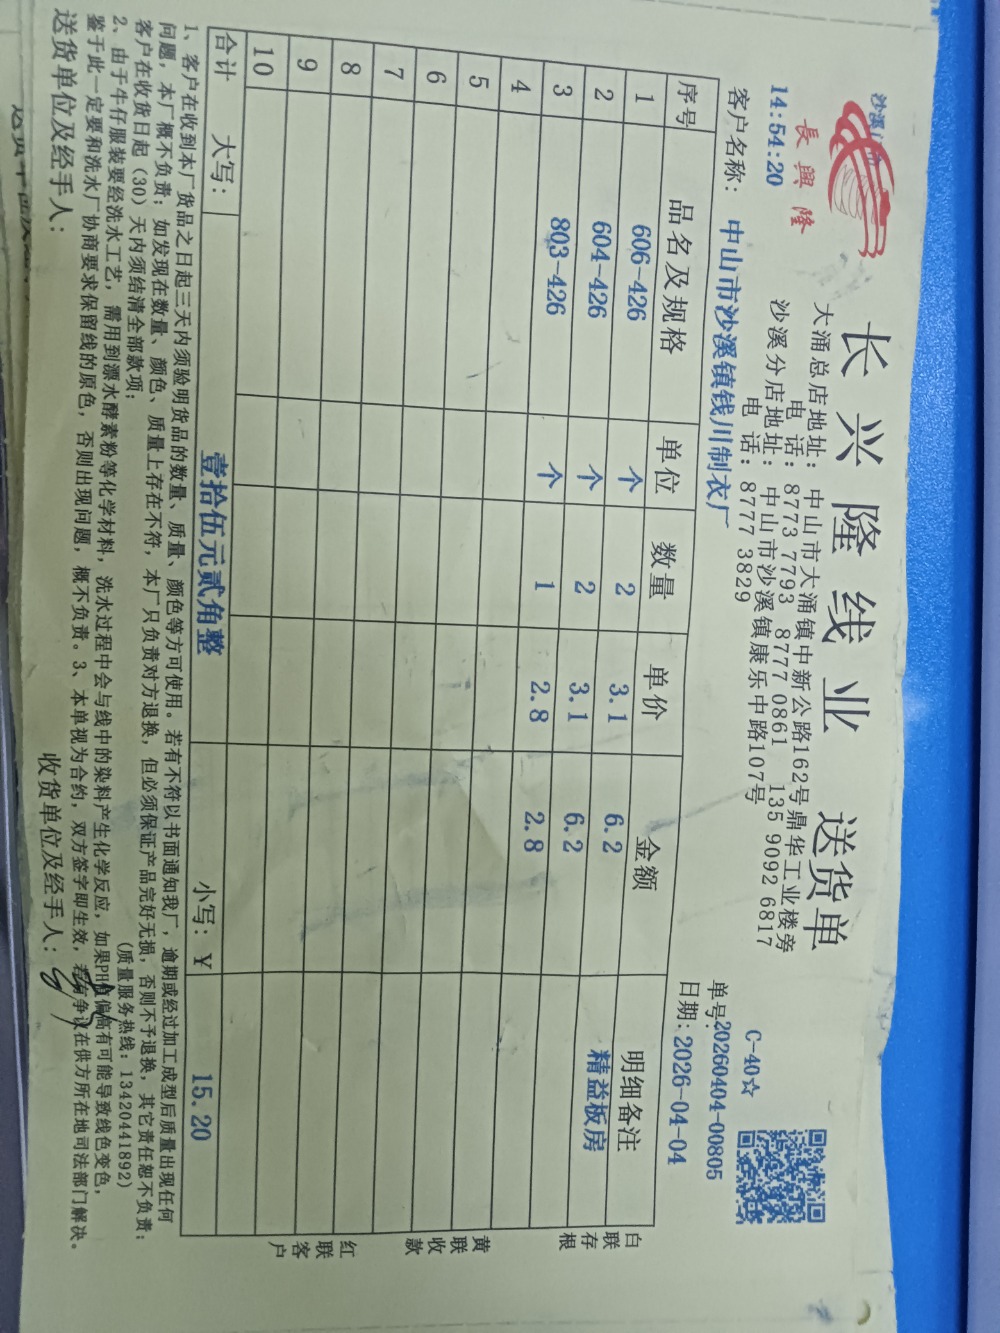 長興隆
长兴隆线业 送货单
14:54:20
大涌总店地址：中山市大涌镇中新公路162号鼎华工业楼旁
电 话：8773 7793 8777 0861 135 9092 6817
沙溪分店地址：中山市沙溪镇康乐中路107号
电 话：8777 3829
C-40☆
单号：20260404-00805
客户名称：中山市沙溪镇钱川制衣厂 日期：2026-04-04
序号 品名及规格 单位 数量 单价 金额 明细备注
1 606-426 个 2 3.1 6.2 精益板房
2 604-426 个 2 3.1 6.2
3 803-426 个 1 2.8 2.8
4
5
6
7
8
9
10
合计 大写： 壹拾伍元贰角整 小写：￥ 15.20
白联存根
黄联收款
红联客户
1、客户在收到本厂货品之日起三天内须验明货品的数量、质量、颜色等方可使用。若有不符以书面通知我厂，逾期或经过加工成型后质量出现任何
问题，本厂概不负责；如发现在数量、颜色、质量上存在不符，本厂只负责对方退换，但必须保证产品完好无损，否则不予退换，其它责任恕不负责；
客户在收货日起（30）天内须结清全部款项； （质量服务热线：13420441892）
2、由于牛仔服装要经洗水工艺，需用到漂水酵素粉等化学材料，洗水过程中会与线中的染料产生化学反应，如果PH值偏高有可能导致线色变色，
鉴于此一定要和洗水厂协商要求保留线的原色，否则出现问题，概不负责。3、本单视为合约，双方签字即生效，若有争议在供方所在地司法部门解决。
送货单位及经手人： 收货单位及经手人：